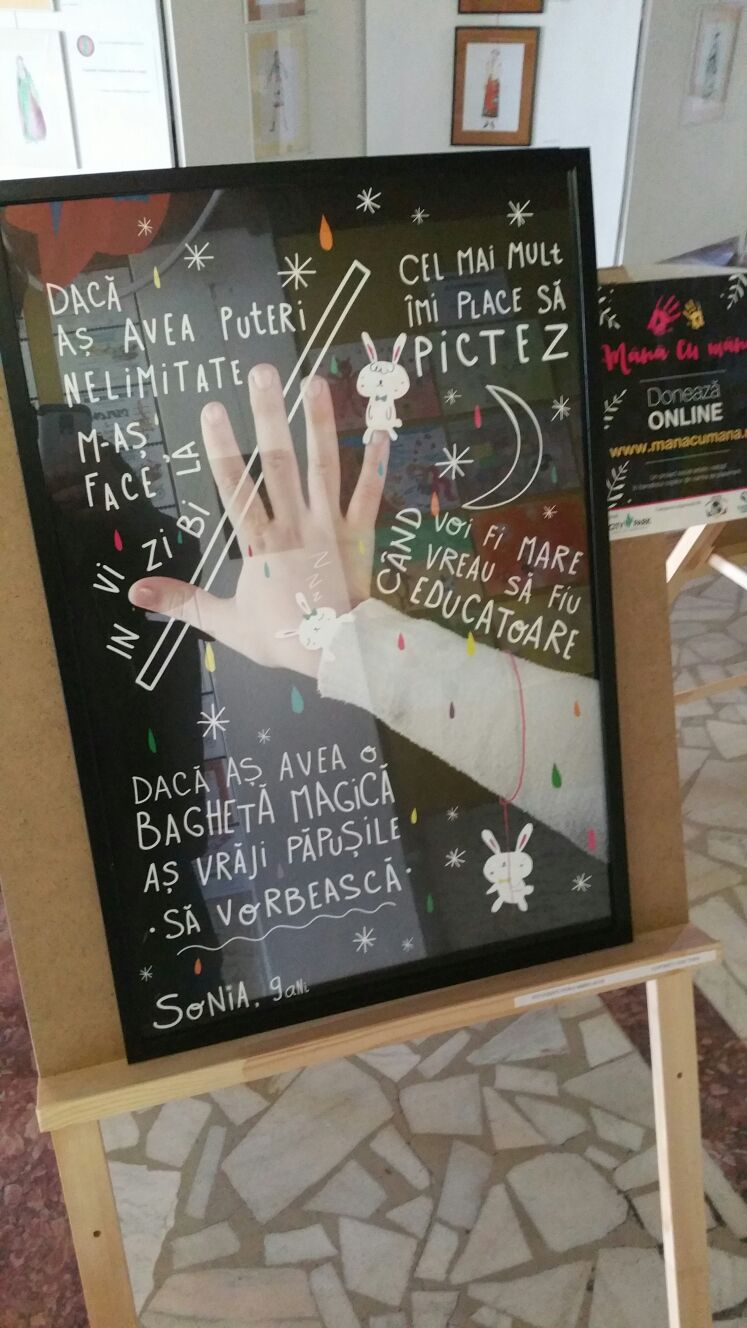 DACĂ
AȘ AVEA PUTERI
NELIMITATE
M-AȘ
FACE LA
IN VI ZI BI
CEL MAI MULt
ÎMI PLACE SĂ
PICTEZ
CÂND VOI FI MARE
VREAU SĂ FIU
EDUCATOARE
DACĂ AȘ AVEA O
BAGHETĂ MAGICĂ
AȘ VRĂJI PĂPUȘILE
·SĂ VORBEASCĂ·
SONIA, 9 aNi
Mână cu mân
Donează
ONLINE
www.manacumana.r